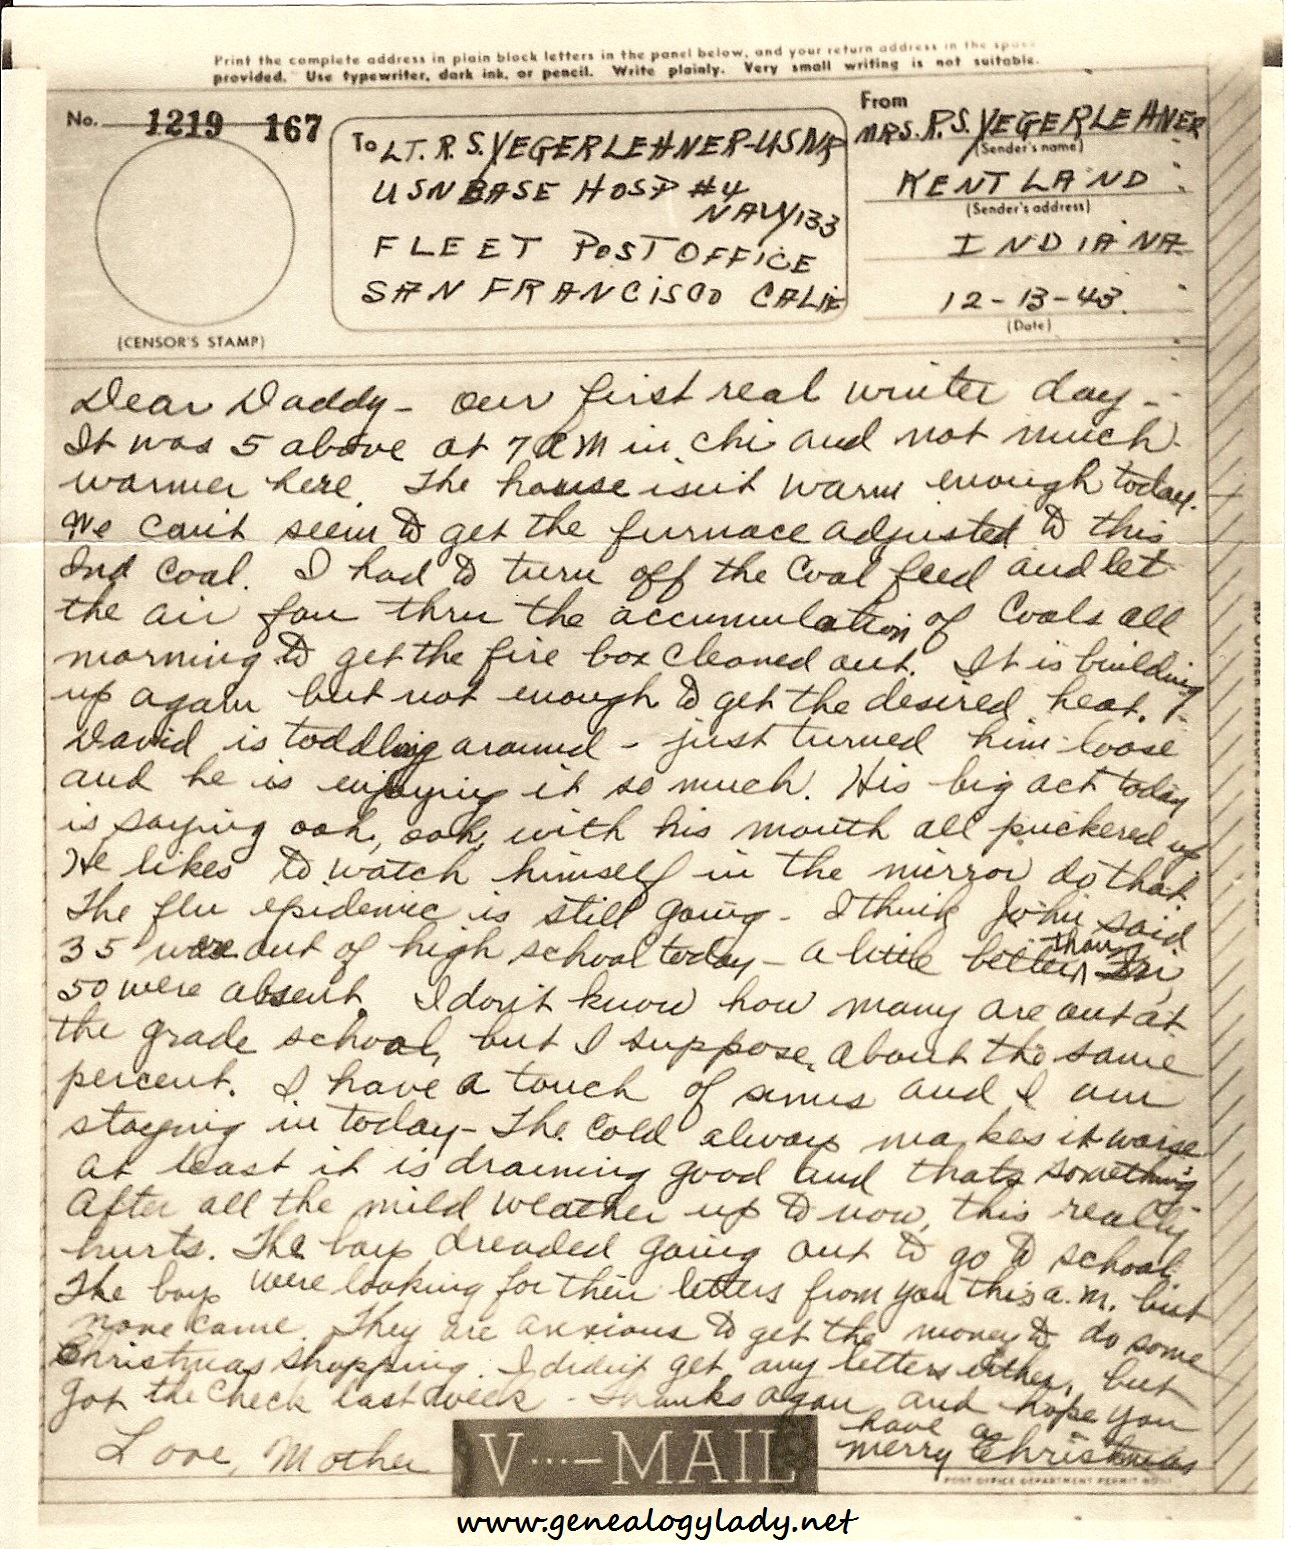 Print the complete address in plain block letters in the panel below, and your return address in the space
provided. Use typewriter, dark ink, or pencil. Write plainly. Very small writing is not suitable.
No. 1219 167
(CENSOR'S STAMP)
To LT. R. S. YEGERLEHNER-USNR
USN BASE HOSP #4
NAVY 133
FLEET POST OFFICE
SAN FRANCISCO CALIF
From
MRS. R.S. YEGERLEHNER
(Sender's name)
KENTLAND
(Sender's address)
INDIANA
12-13-43.
(Date)
Dear Daddy - our first real winter day -
It was 5 above at 7 AM in Chi and not much
warmer here. The house isn't warm enough today.
We can't seem to get the furnace adjusted to this
Ind coal. I had to turn off the coal feed and let
the air fan thru the accumulation of coals all
morning to get the fire box cleaned out. It is building
up again but not enough to get the desired heat.
David is toddling around - just turned him loose
and he is enjoying it so much. His big act today
is saying ooh, ooh, with his mouth all puckered up
He likes to watch himself in the mirror do that.
The flu epidemic is still going - I think John said
35 were out of high school today - a little better than Fri,
50 were absent. I don't know how many are out at
the grade school, but I suppose about the same
percent. I have a touch of sinus and I am
staying in today - The cold always makes it worse
at least it is draining good and thats something
After all the mild weather up to now, this really
hurts. The boys dreaded going out to go to school.
The boys were looking for their letters from you this a.m. but
none came. They are anxious to get the money to do some
Christmas shopping. I didn't get any letters either, but
got the check last week - Thanks again and hope you
have a
merry Christmas
Love, Mother
V...-MAIL
POST OFFICE DEPARTMENT PERMIT NO.
www.genealogylady.net